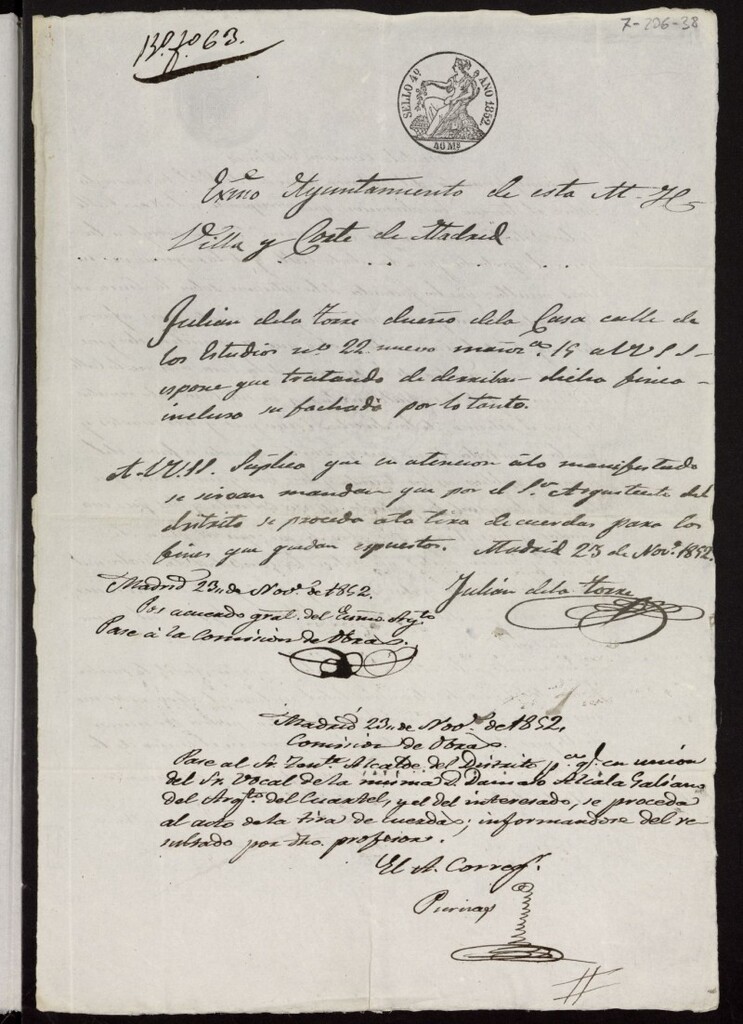 7-206-38
Bº fº 63.
SELLO 4º AÑO 1852.
40 Ms
Exmo Ayuntamiento de esta M. H.
Villa y Corte de Madrid.
Julian dela Torre dueño dela Casa calle de
los Estudios nº 22 nuevo manzª 15 a V.S.S.
espone que tratando de derribar dicha finca
incluso su fachada por lo tanto.
A V.SS. Suplica que en atencion álo manifestado
se sirvan mandar que por el Sor Arquitecto del
distrito se proceda ála tira de cuerdas para los
fines que quedan espuestos. Madrid 23 de Novº 1852.
Julian dela Torre
Madrid 23,, de Novº de 1852.
Por acuerdo gral. del Exmo Aytº
Pase á la Comision de Obras.
Madrid 23,, de Novº de 1852.
Comision de Obras.
Pase al Sr. Tente Alcalde del Distrito pa q. en union
del Sr. Vocal de la misma D. Dionisio Alcala Galiano
del Arqto del Cuartel, y el del interesado, se proceda
al acto dela tira de cuerdas; informandose del re
sultado por dho. profesor.
El A. Corregr.